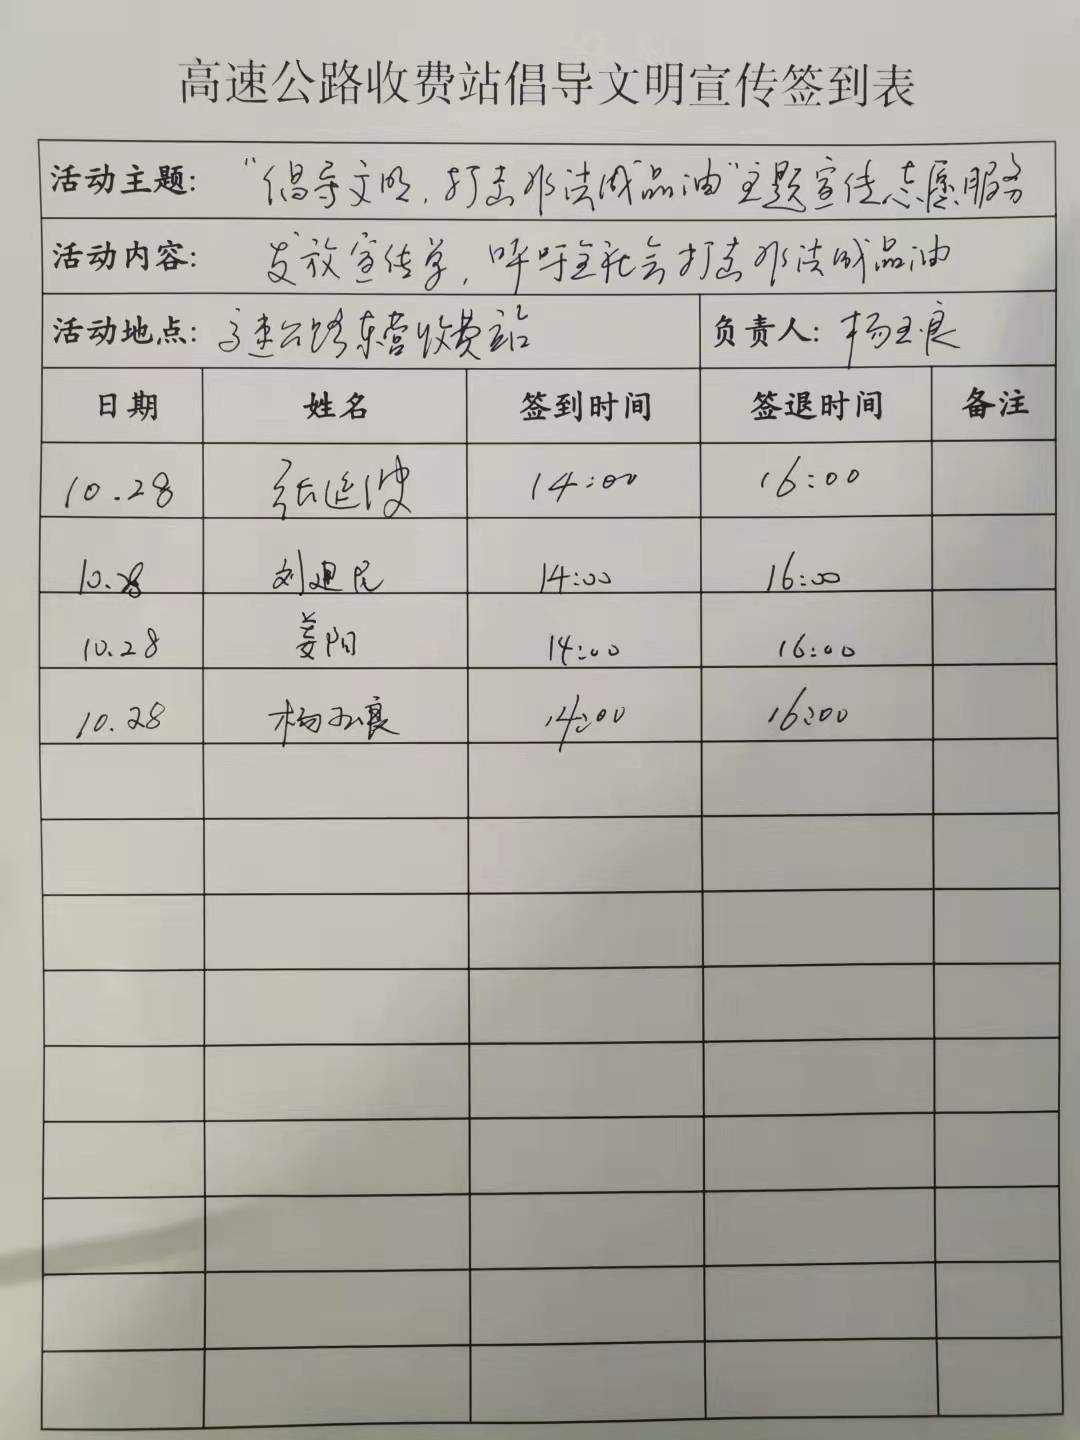 高速公路收费站倡导文明宣传签到表
活动主题: “倡导文明，打击非法成品油”主题宣传志愿服务
活动内容: 发放宣传单，呼吁全社会打击非法成品油
活动地点: 高速公路东营收费站 负责人: 杨玉良
日期 姓名 签到时间 签退时间 备注
10.28 张延波 14:00 16:00
10.28 刘建民 14:00 16:00
10.28 姜阳 14:00 16:00
10.28 杨玉良 14:00 16:00